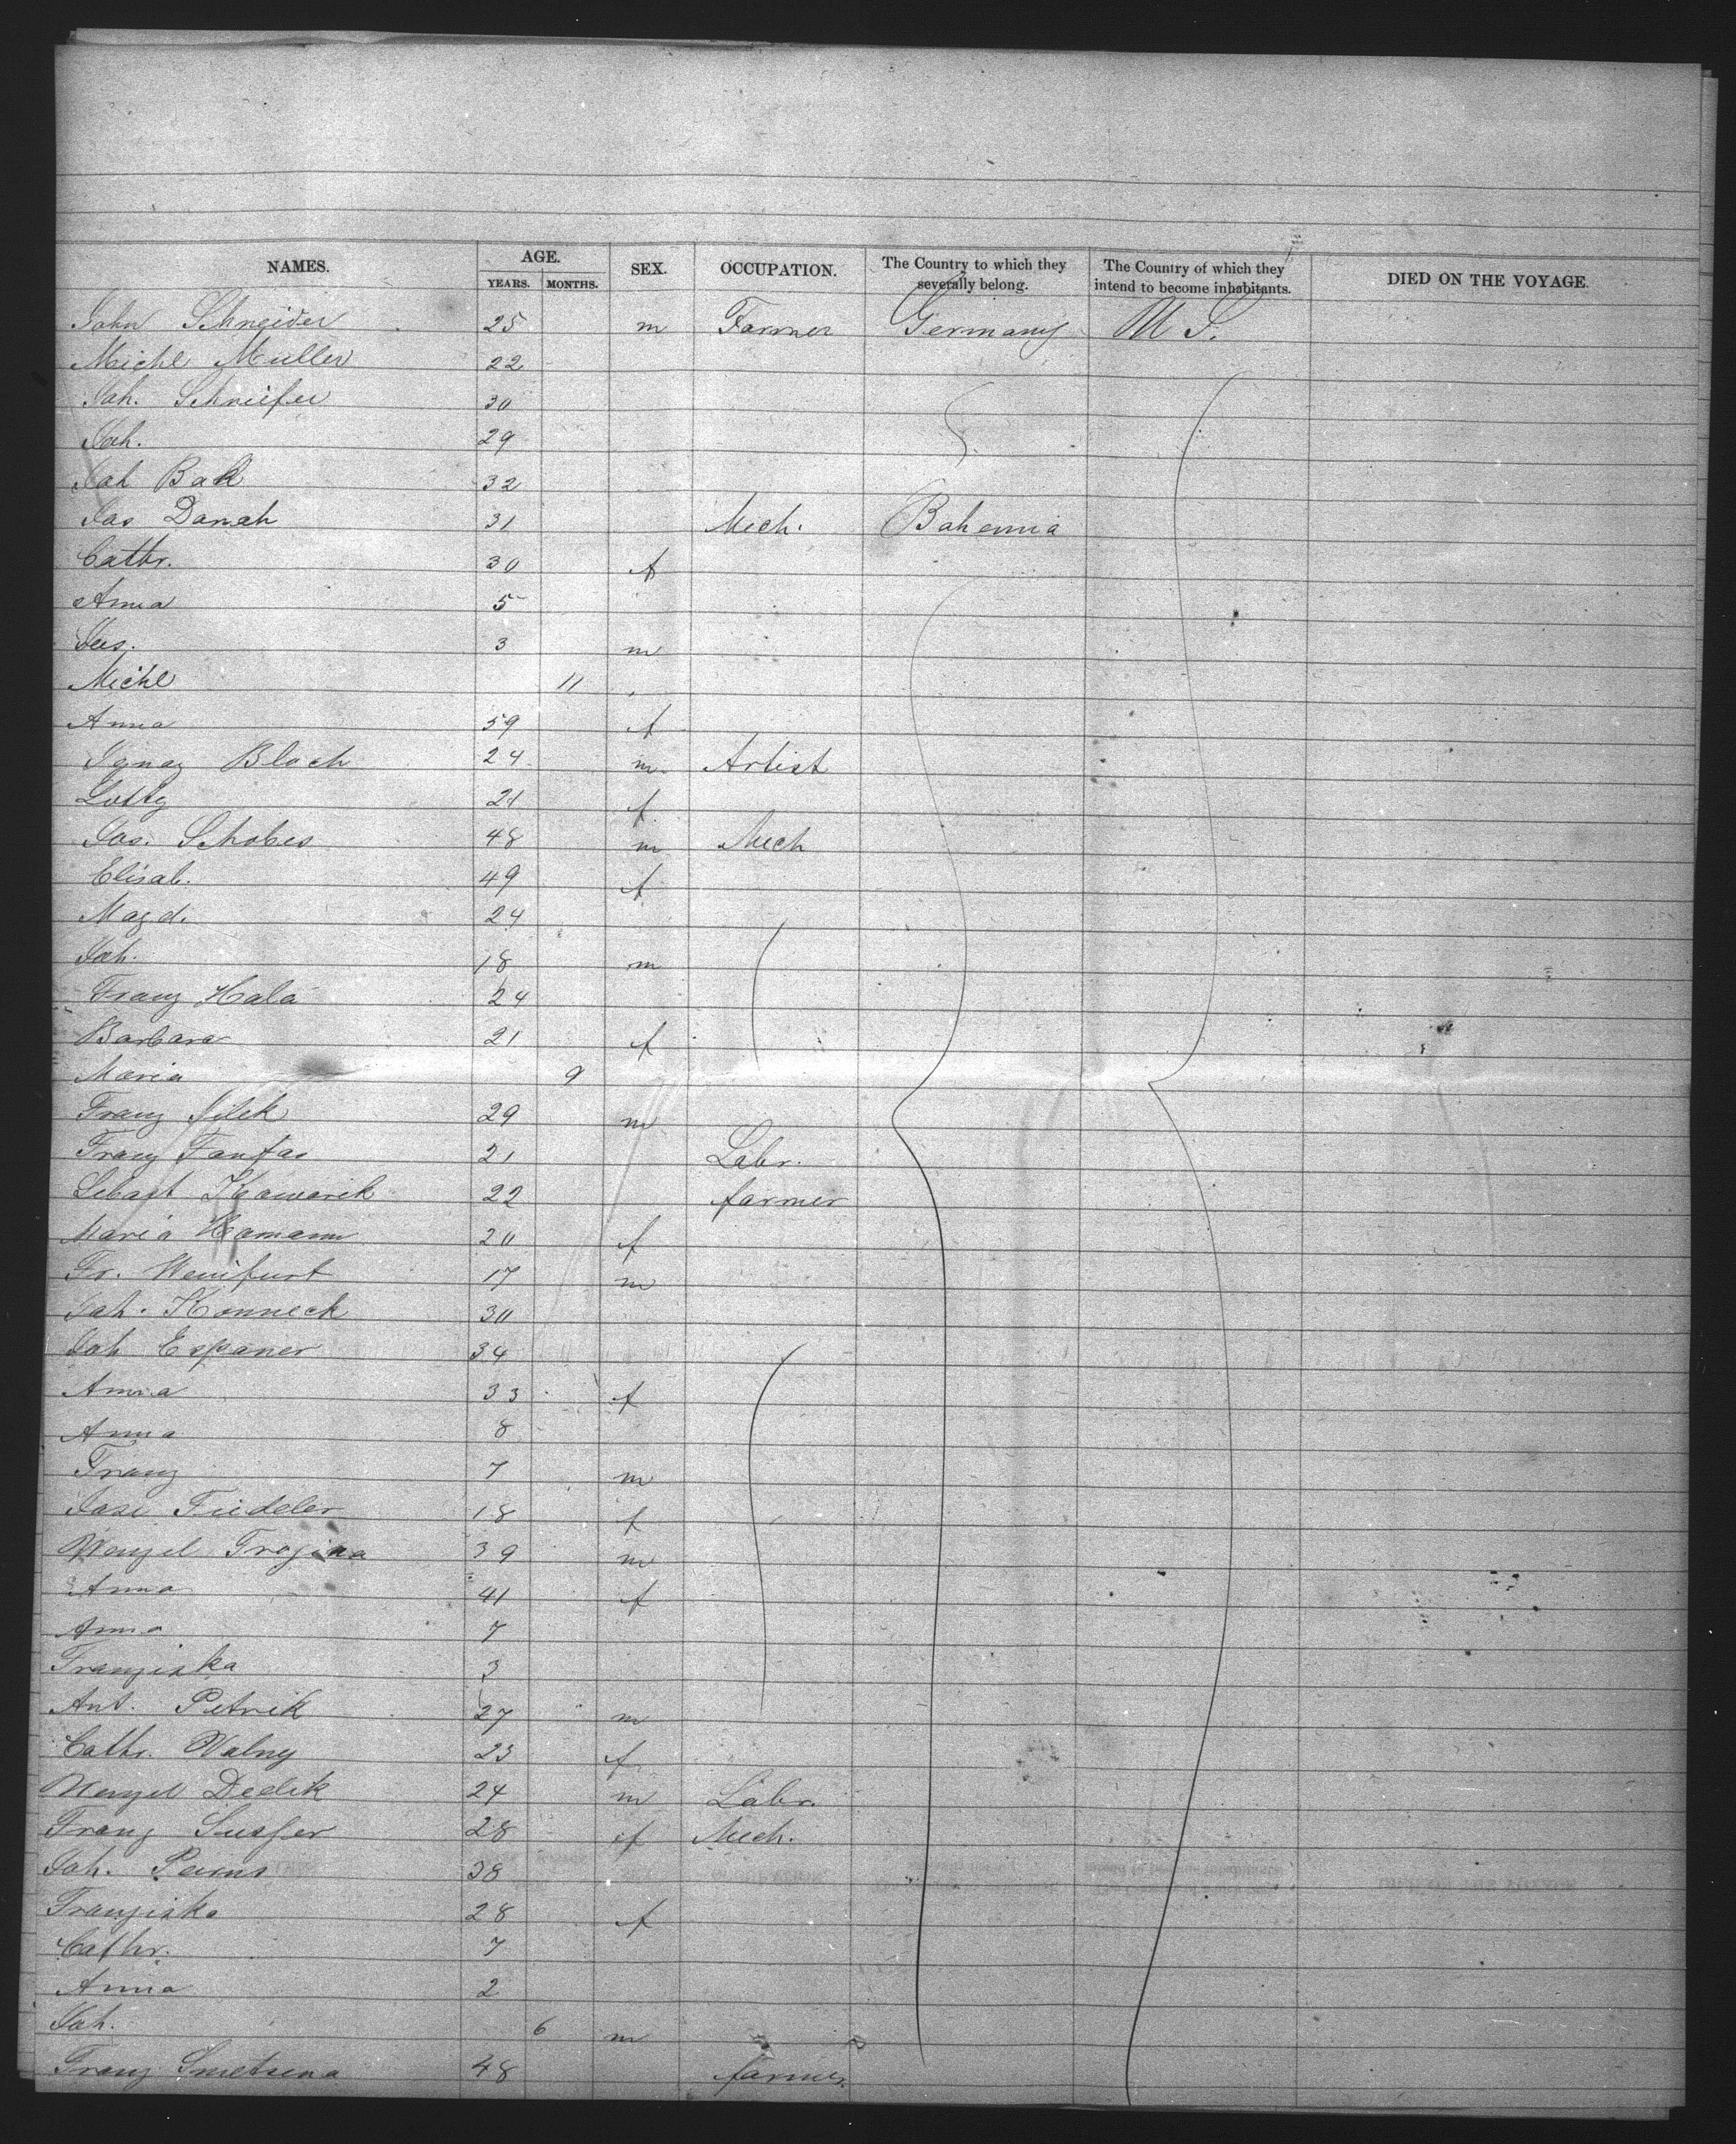 NAMES. AGE. SEX. OCCUPATION. The Country to which they severally belong. The Country of which they intend to become inhabitants. DIED ON THE VOYAGE.
YEARS. MONTHS.
John Schneider 25 m Farmer Germany U S.
Michl Muller 22
Joh. Schneifer 30
Joh. 29
Joh Bak 32
Jos Danch 31 Mech. Bohemia
Cathr. 30 f
Anna 5
Jos. 3 m
Michl 11
Anna 59 f
Ignaz Bloch 24 m Artist
Lotty 21 f
Jos. Schobes 48 m Mech
Elisab. 49 f
Magd. 24
Joh. 18 m
Franz Hala 24
Barbara 21 f
Maria 9
Franz Jilek 29 m
Franz Fanfas 21 Labr.
Sebast Kawarik 22 farmer
Maria Hamann 20 f
Fr. 17 m
Joh. Konneck 30
Joh Espaner 34
Anna 33 f
Anna 8
Franz 7 m
Fiedeler 18 f
Wenzel Trojina 39 m
Anna 41 f
Anna 7
Franziska 3
Ant. Petrik 27 m
Cathr. Walny 23 f
Wenzel Dedik 24 m Labr.
Franz Susser 28 f Mech.
Joh. 38
Franziska 28 f
Cathr. 7
Anna 2
Joh. 6 m
Franz Smetsena 48 farmer